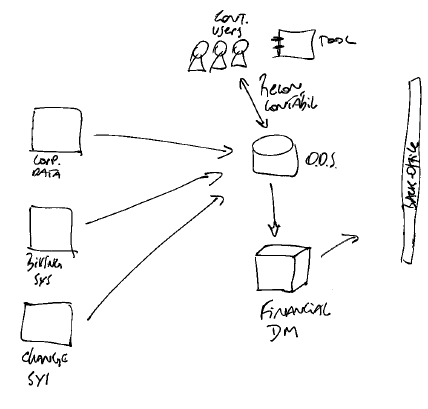 CONT.
USERS
TOOL
RECON.
CONTABIL
CORP.
DATA
O.D.S.
BACK-OFFICE
BILLING
SYS
FINANCIAL
DM
CHANGE
SYS